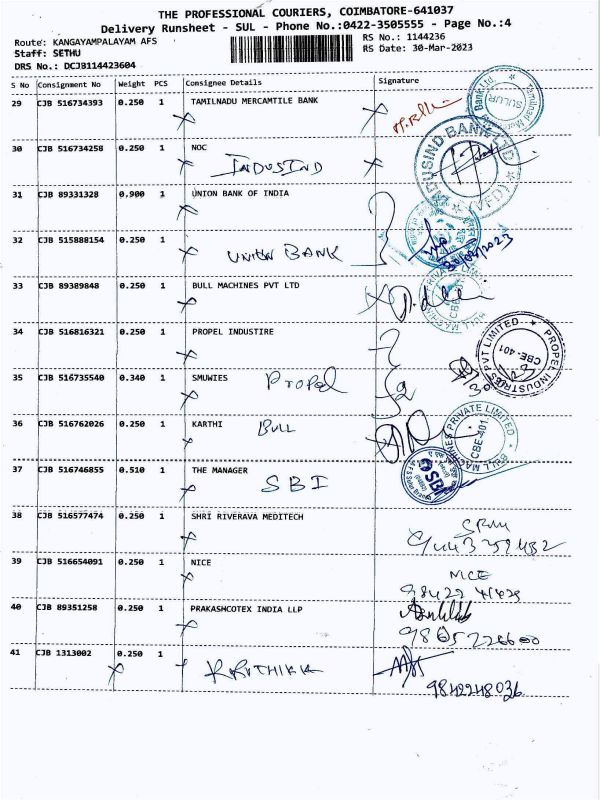 THE PROFESSIONAL COURIERS, COIMBATORE-641037
Delivery Runsheet - SUL - Phone No.:0422-3505555 - Page No.:4
Route: KANGAYAMPALAYAM AFS
RS No.: 1144236
Staff: SETHU
RS Date: 30-Mar-2023
DRS No.: DCJB114423604
S No Consignment No Weight PCS Consignee Details Signature
29 CJB 516734393 0.250 1 TAMILNADU MERCAMTILE BANK
Bank Ltd. SULUR
30 CJB 516734258 0.250 1 NOC
INDUSIND
INDUSIND BANK LTD
31 CJB 89331328 0.900 1 UNION BANK OF INDIA
32 CJB 515888154 0.250 1
UNION BANK
30/03/2023
33 CJB 89389848 0.250 1 BULL MACHINES PVT LTD
34 CJB 516816321 0.250 1 PROPEL INDUSTIRE
PROPEL INDUSTRIES PVT LIMITED CBE-401
35 CJB 516735540 0.340 1 SMUWIES
Propel
36 CJB 516762026 0.250 1 KARTHI
BULL
BULL MACHINES PRIVATE LIMITED CBE-401
37 CJB 516746855 0.510 1 THE MANAGER
SBI
SBI
38 CJB 516577474 0.250 1 SHRI RIVERAVA MEDITECH
39 CJB 516654091 0.250 1 NICE
40 CJB 89351258 0.250 1 PRAKASHCOTEX INDIA LLP
41 CJB 1313002 0.250 1
KARTHIKK
9842248036